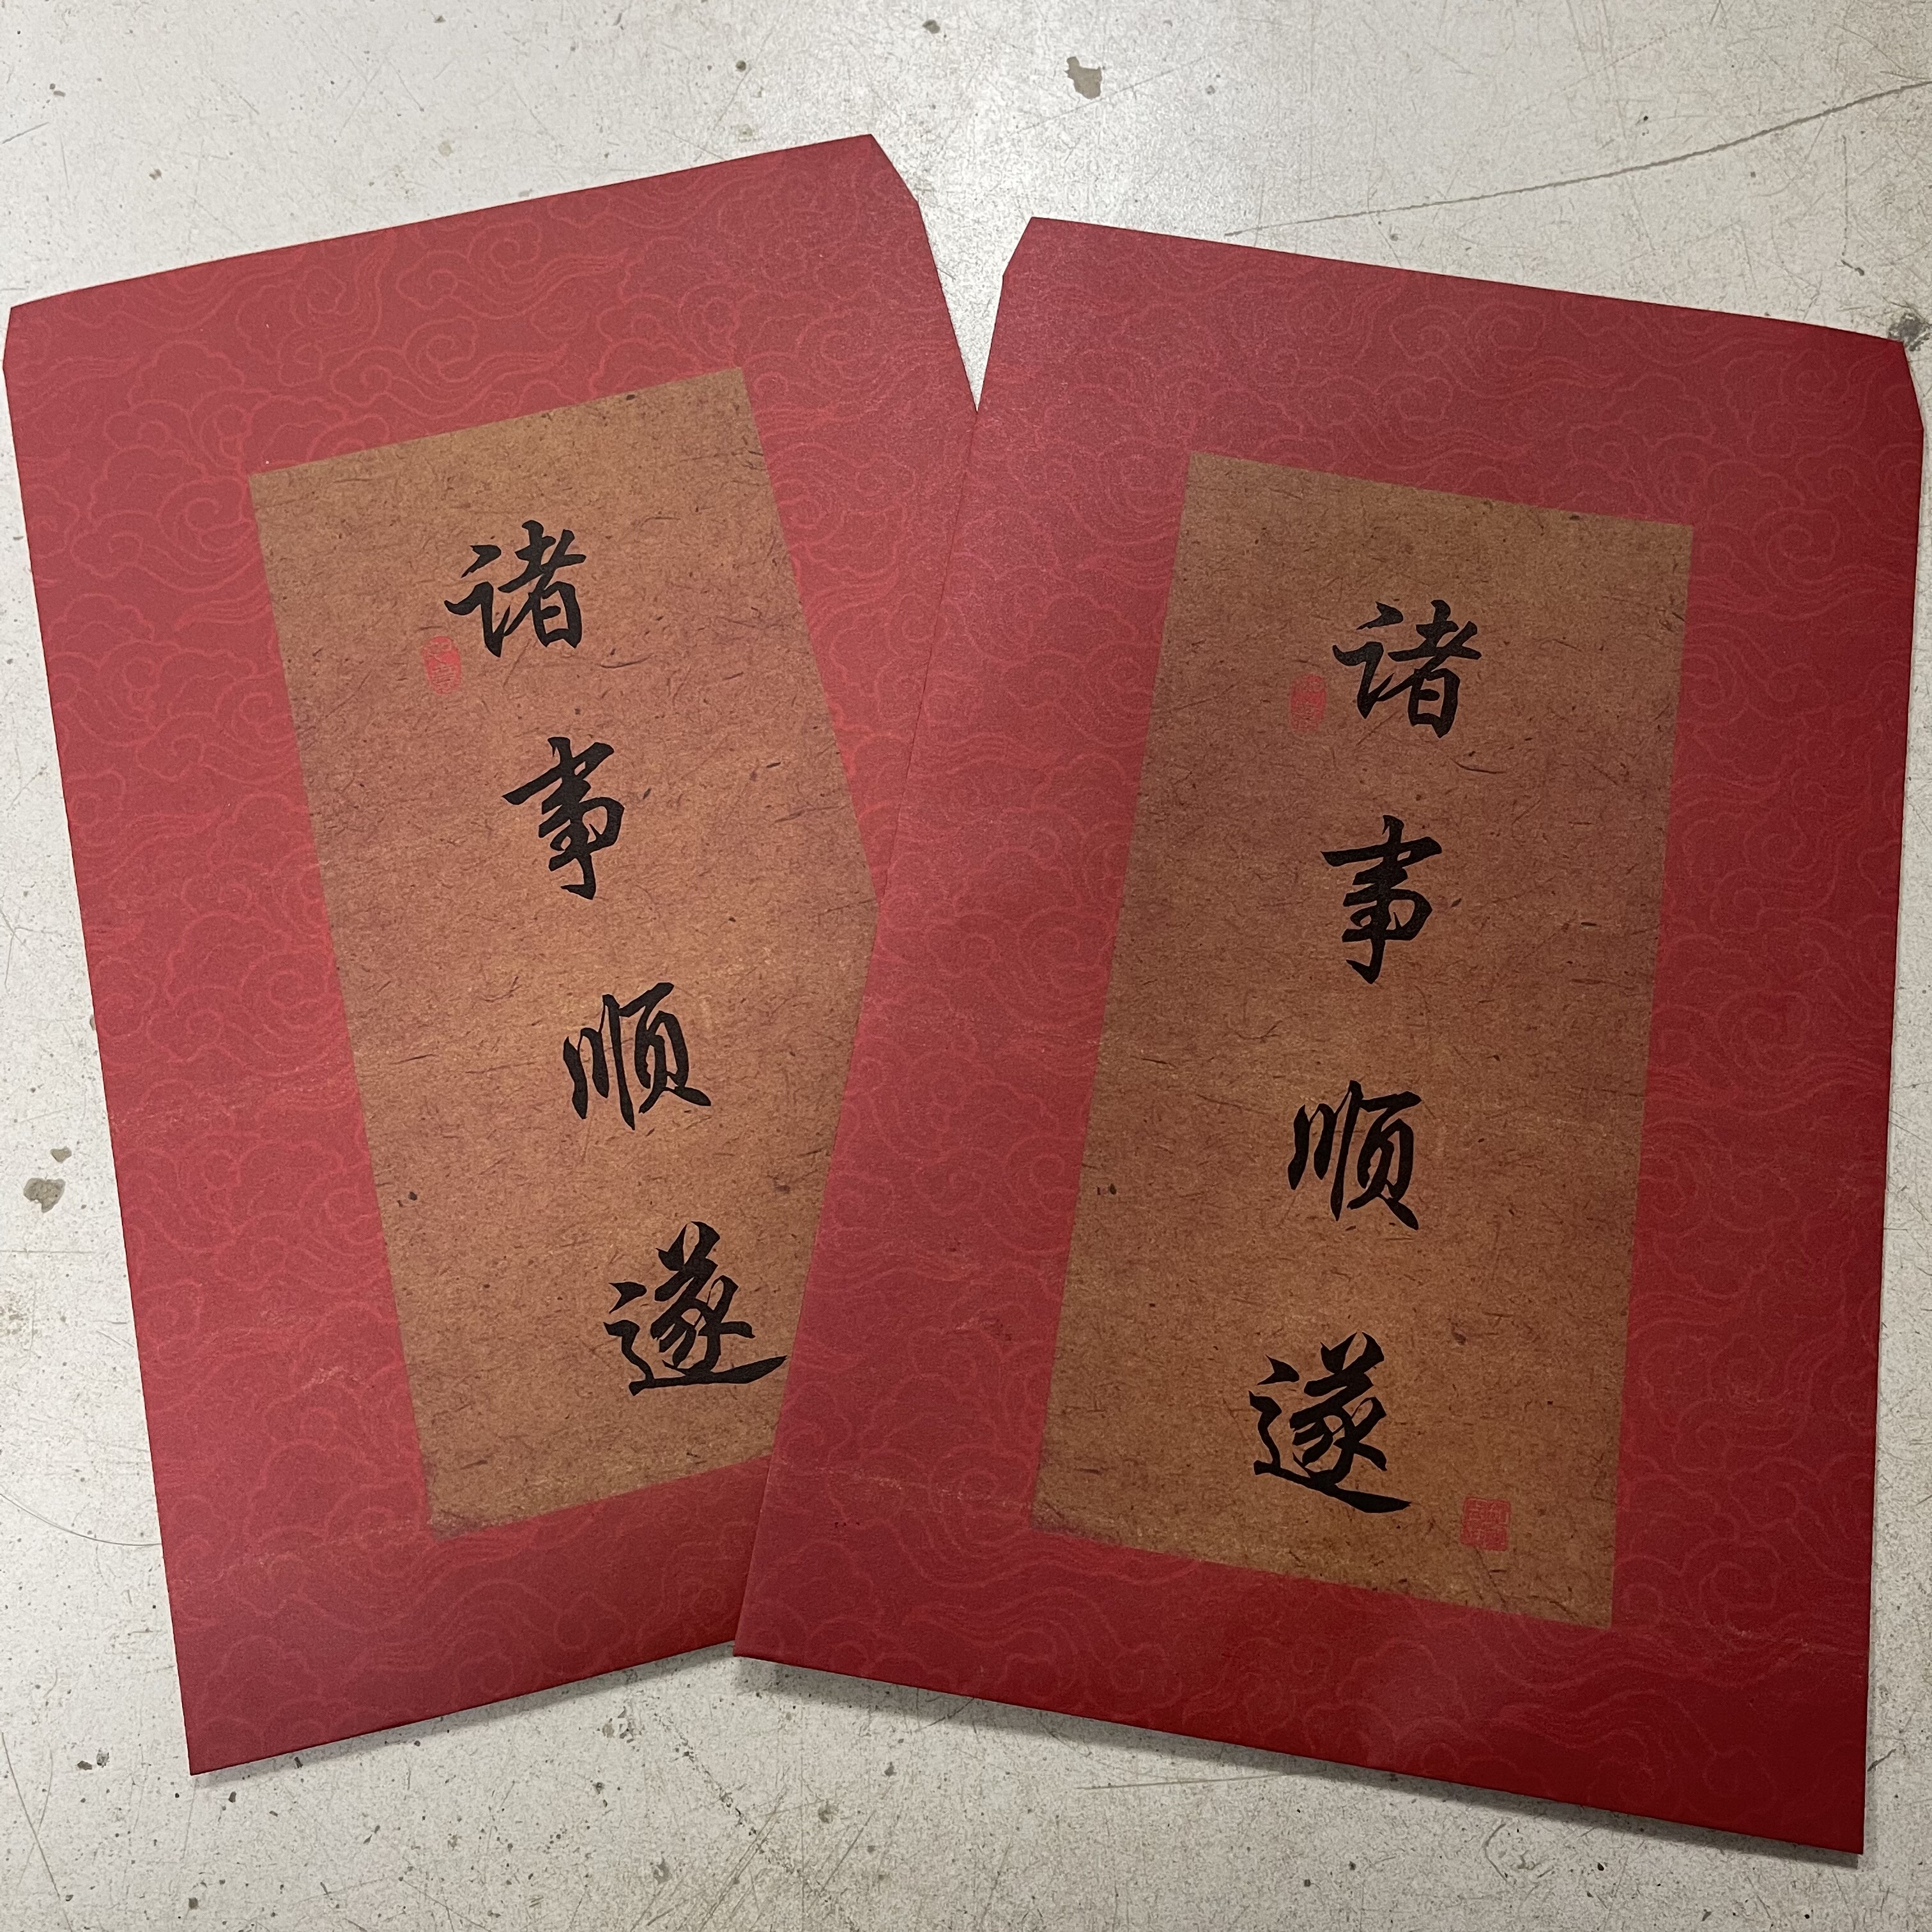 诸事顺遂
诸事顺遂